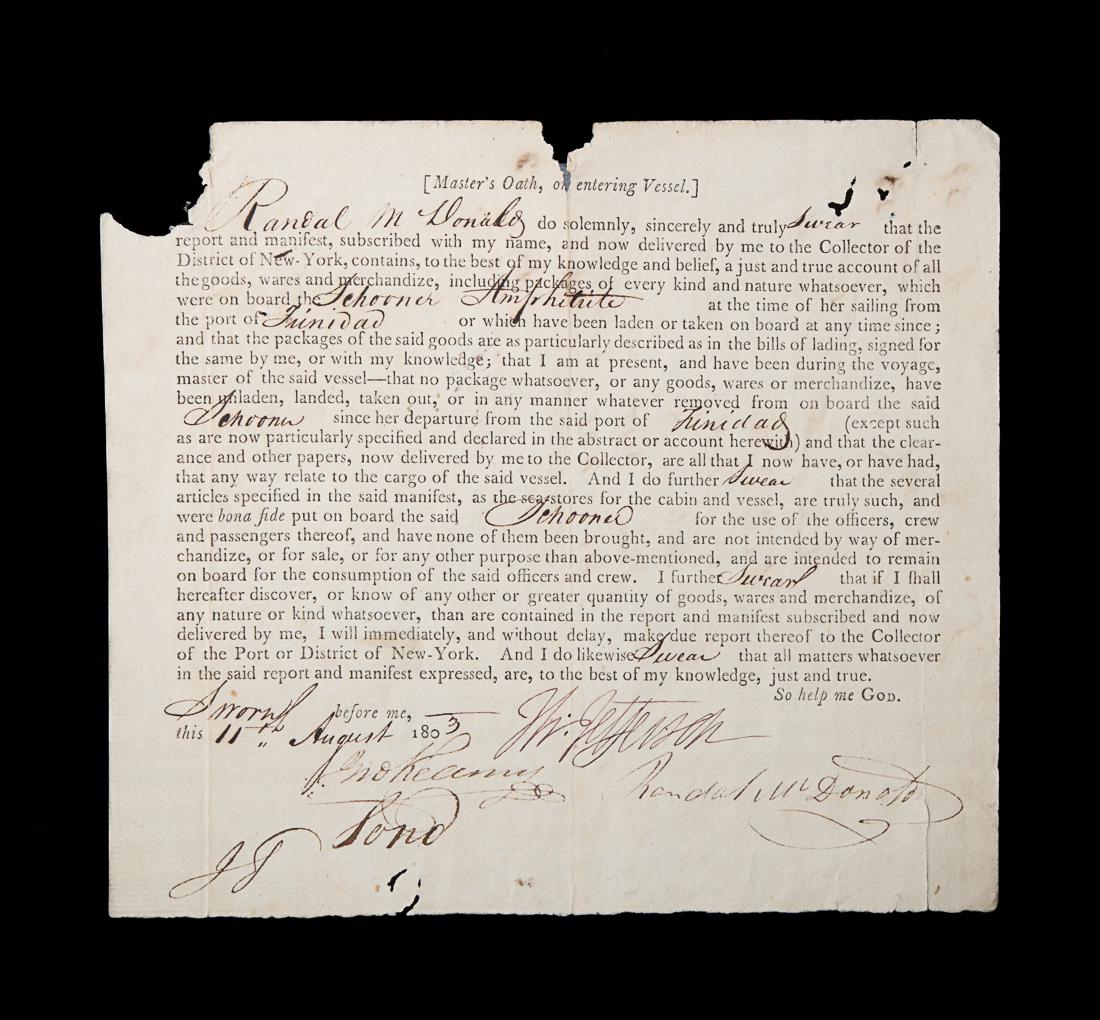 [Master's Oath, on entering Vessel.]
Randal McDonald do solemnly, sincerely and truly Swear that the
report and manifest, subscribed with my name, and now delivered by me to the Collector of the
District of New-York, contains, to the best of my knowledge and belief, a just and true account of all
the goods, wares and merchandize, including packages of every kind and nature whatsoever, which
were on board the Schooner Amphitrite at the time of her sailing from
the port of Trinidad or which have been laden or taken on board at any time since;
and that the packages of the said goods are as particularly described as in the bills of lading, signed for
the same by me, or with my knowledge; that I am at present, and have been during the voyage,
master of the said vessel—that no package whatsoever, or any goods, wares or merchandize, have
been unladen, landed, taken out, or in any manner whatever removed from on board the said
Schooner since her departure from the said port of Trinidad (except such
as are now particularly specified and declared in the abstract or account herewith) and that the clear-
ance and other papers, now delivered by me to the Collector, are all that I now have, or have had,
that any way relate to the cargo of the said vessel. And I do further Swear that the several
articles specified in the said manifest, as the sea-stores for the cabin and vessel, are truly such, and
were bona fide put on board the said Schooner for the use of the officers, crew
and passengers thereof, and have none of them been brought, and are not intended by way of mer-
chandize, or for sale, or for any other purpose than above-mentioned, and are intended to remain
on board for the consumption of the said officers and crew. I further Swear that if I shall
hereafter discover, or know of any other or greater quantity of goods, wares and merchandize, of
any nature or kind whatsoever, than are contained in the report and manifest subscribed and now
delivered by me, I will immediately, and without delay, make due report thereof to the Collector
of the Port or District of New-York. And I do likewise Swear that all matters whatsoever
in the said report and manifest expressed, are, to the best of my knowledge, just and true.
So help me GOD.
Sworn before me,
this 11th August 1803 Th: Jefferson
Randal McDonald